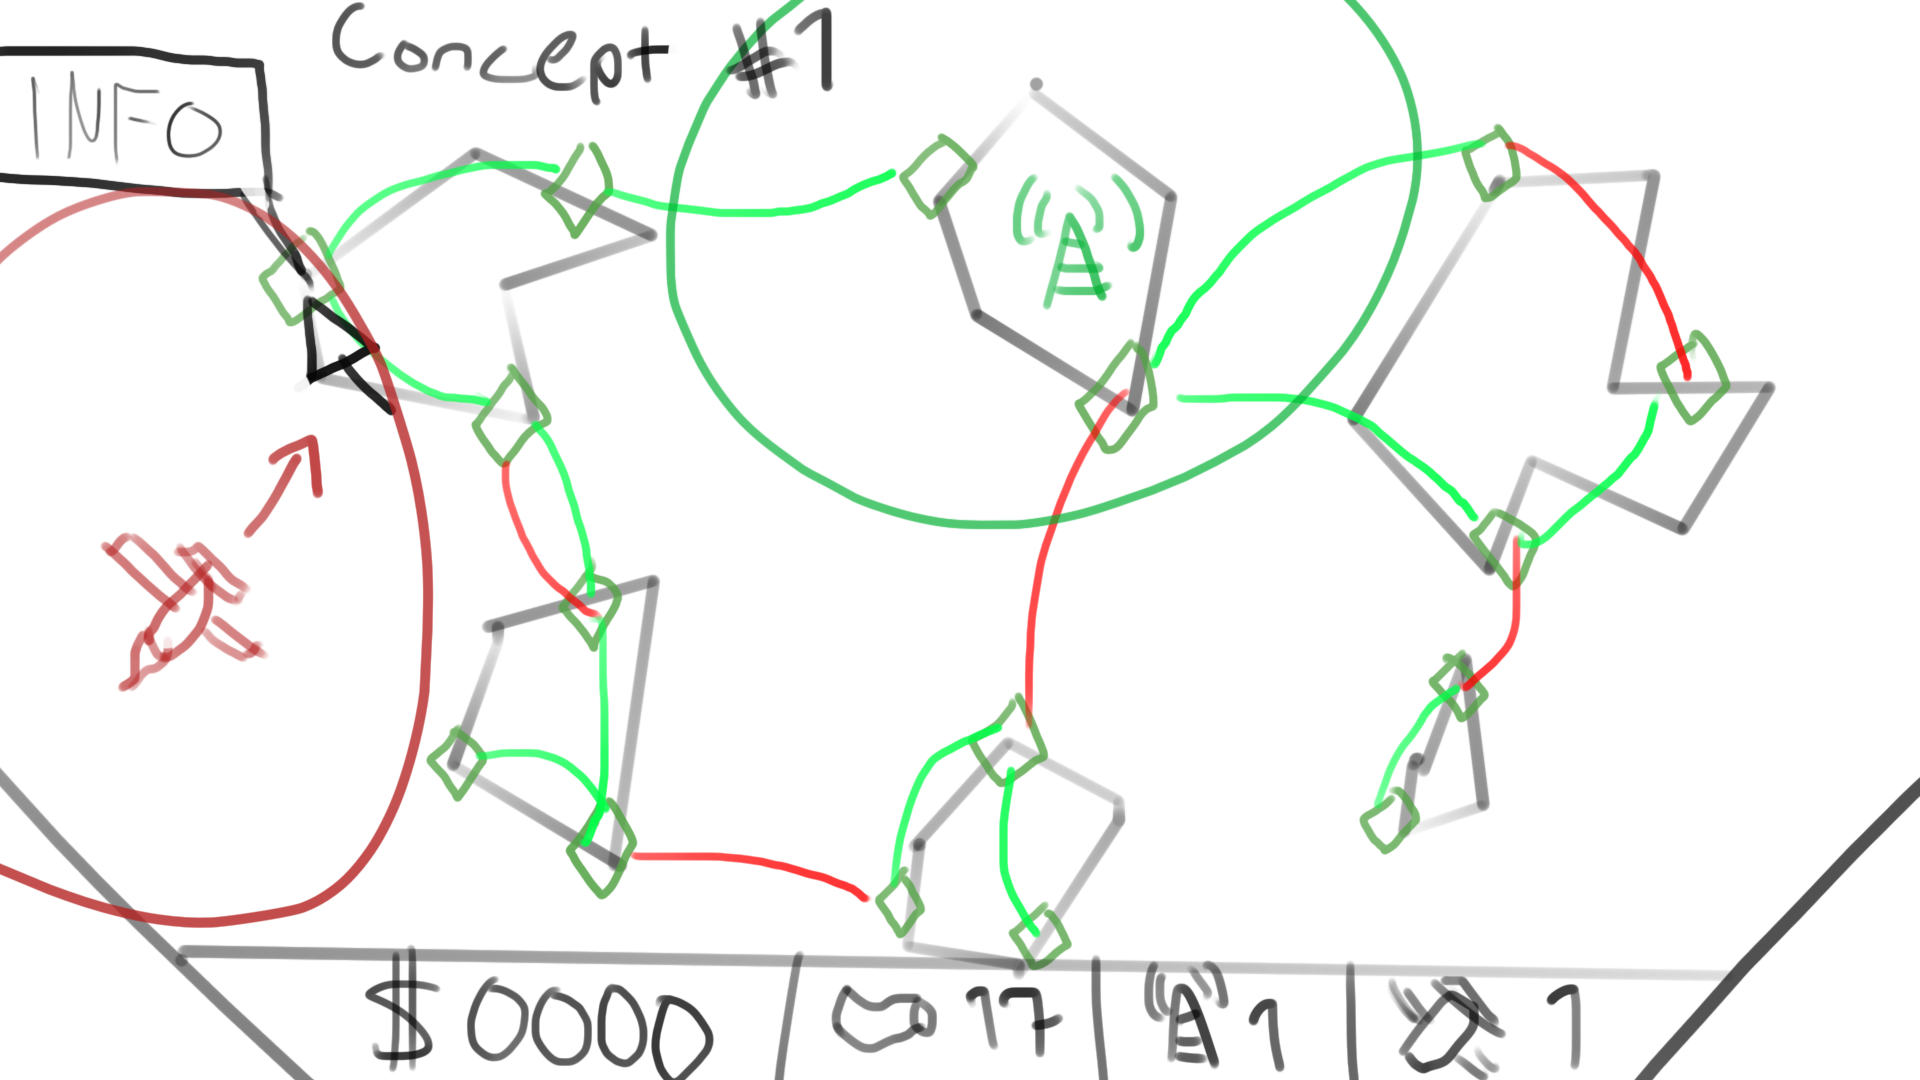 Concept #1
INFO
$0000 | 17 | 1 | 1